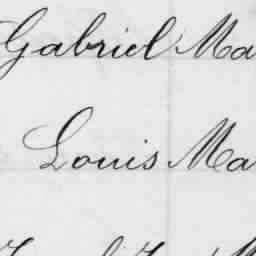 Gabriel Ma
Louis Ma